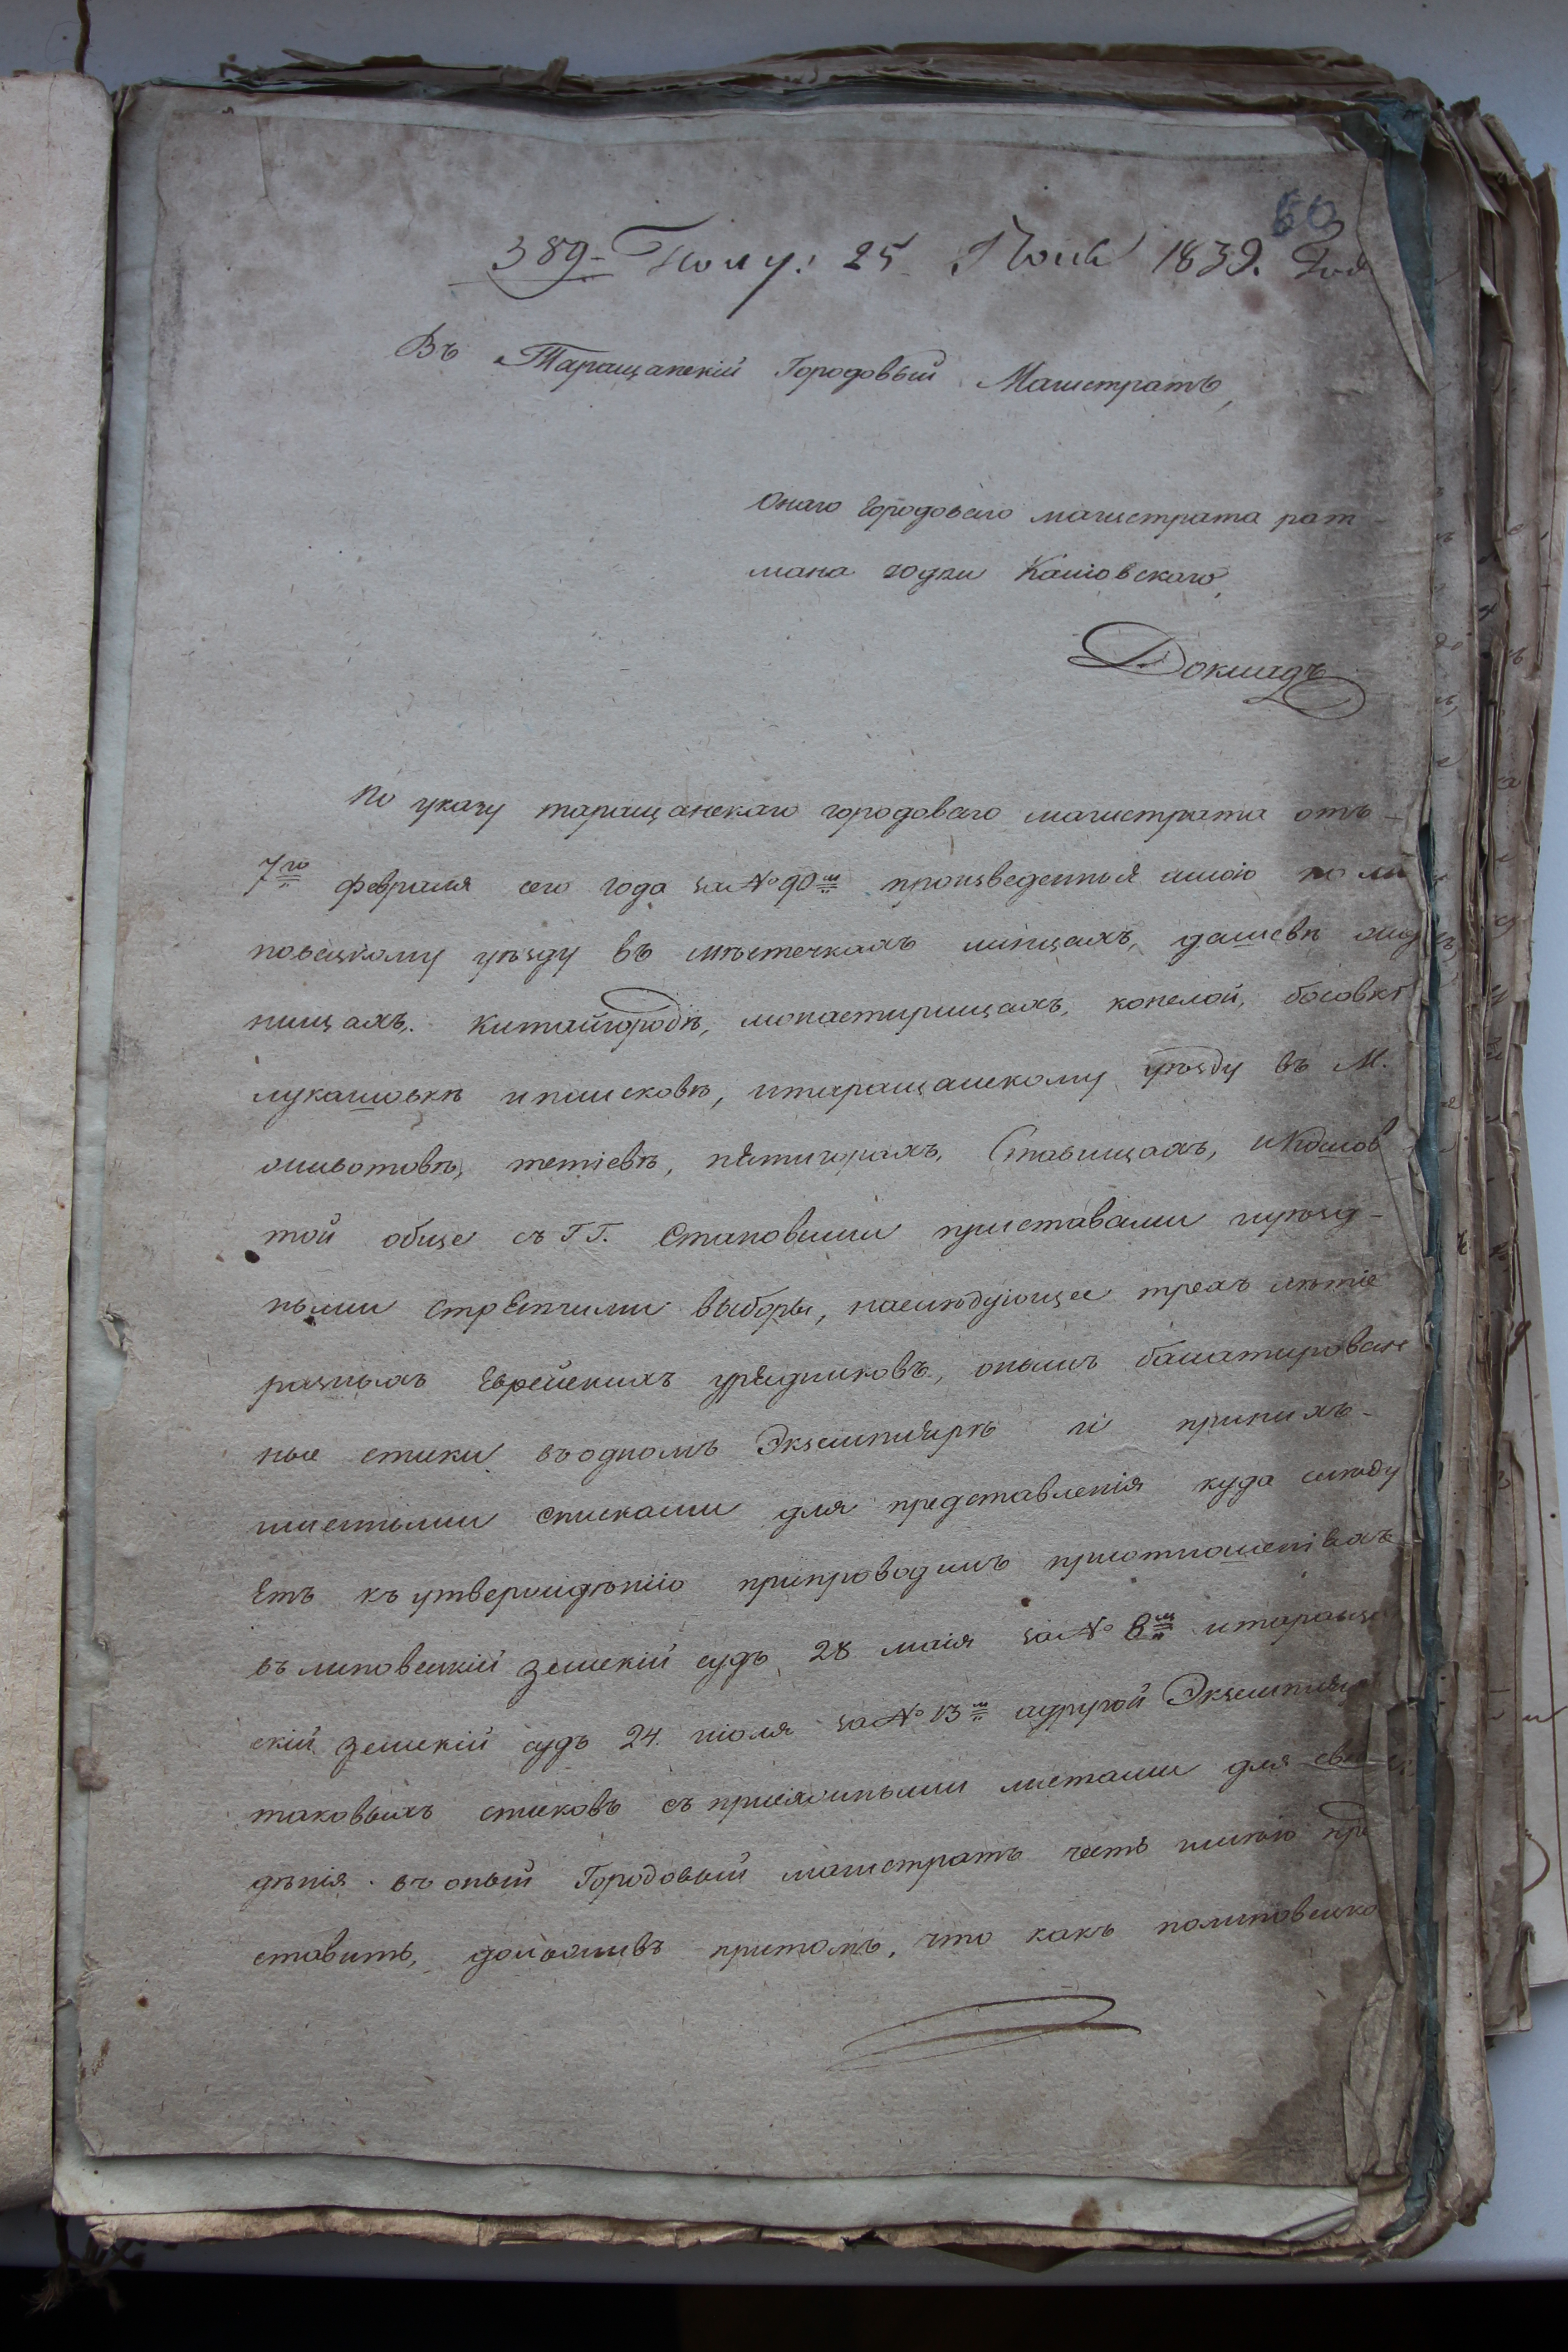 60
389. Полу: 25 Июля 1839. Года
Въ Таращанскій Городовый Магистратъ,
Онаго Городоваго магистрата рат-
мана Юдки Каиовскаго,
Докладъ
По указу таращанскаго городоваго магистрата отъ
7го февраля сего года за № 90м произведенныя мною по ли
повецкому уѣзду въ мѣстечкахъ линцахъ, дашевѣ
нищахъ, китайгородѣ, монастирищахъ, конелой, босовкѣ
лукашовкѣ и паисковѣ, итаращанскому уѣзду въ М.
животовкѣ, тетіевѣ, пятигорахъ, Ставищахъ, и
той обще съ ГГ. Становыми приставами иуѣзд-
ными стряпчими выборы, наслѣдующее трехъ лѣтіе
разныхъ Еврейскихъ урядниковъ, онымъ балатирован
ные списки въодномъ Экземплярѣ при нихъ
списками для представленія куда слѣду
Етъ къ утверждѣнію припроводилъ приотношеніяхъ
въ липовецкій земскій судъ 28 маія за № 8м итаращан
скій земскій судъ 24 июля за № 13м идругой Экземпляръ
таковыхъ списковъ съ присяжными листами для свѣ
дѣнія въ оный Городовый магистратъ честь имѣю пре
ставить, доложивъ притомъ, что какъ полиповецко